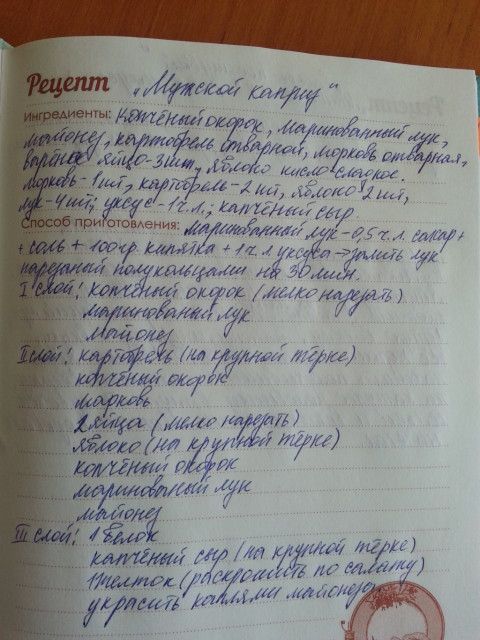 Рецепт „Мужской каприз"
Ингредиенты: Копчёный окорок, маринованный лук,
майонез, картофель отварной, морковь отварная,
яйцо-3шт, яблоко кисло-сладкое.
морковь-1шт, картофель-2шт, яблоко 2шт,
лук-4шт, уксус-1ч.л., капчёный сыр.
Способ приготовления: маринованный лук-0,5ч.л. сахар+
+ соль + 100гр. кипятка + 1ч.л уксуса → залить лук
нарезаный полукольцами на 30 мин.
I слой: копчёный окорок (мелко нарезать)
маринованый лук
майонез
II слой: картофель (на крупной тёрке)
копчёный окорок
марковь
2 яйца (мелко нарезать)
яблоко (на крупной тёрке)
копчёный окорок
маринованый лук
майонез
III слой: 1 белок
капчёный сыр (на крупной тёрке)
1 желток (раскрошить по салату)
украсить каплями майонеза